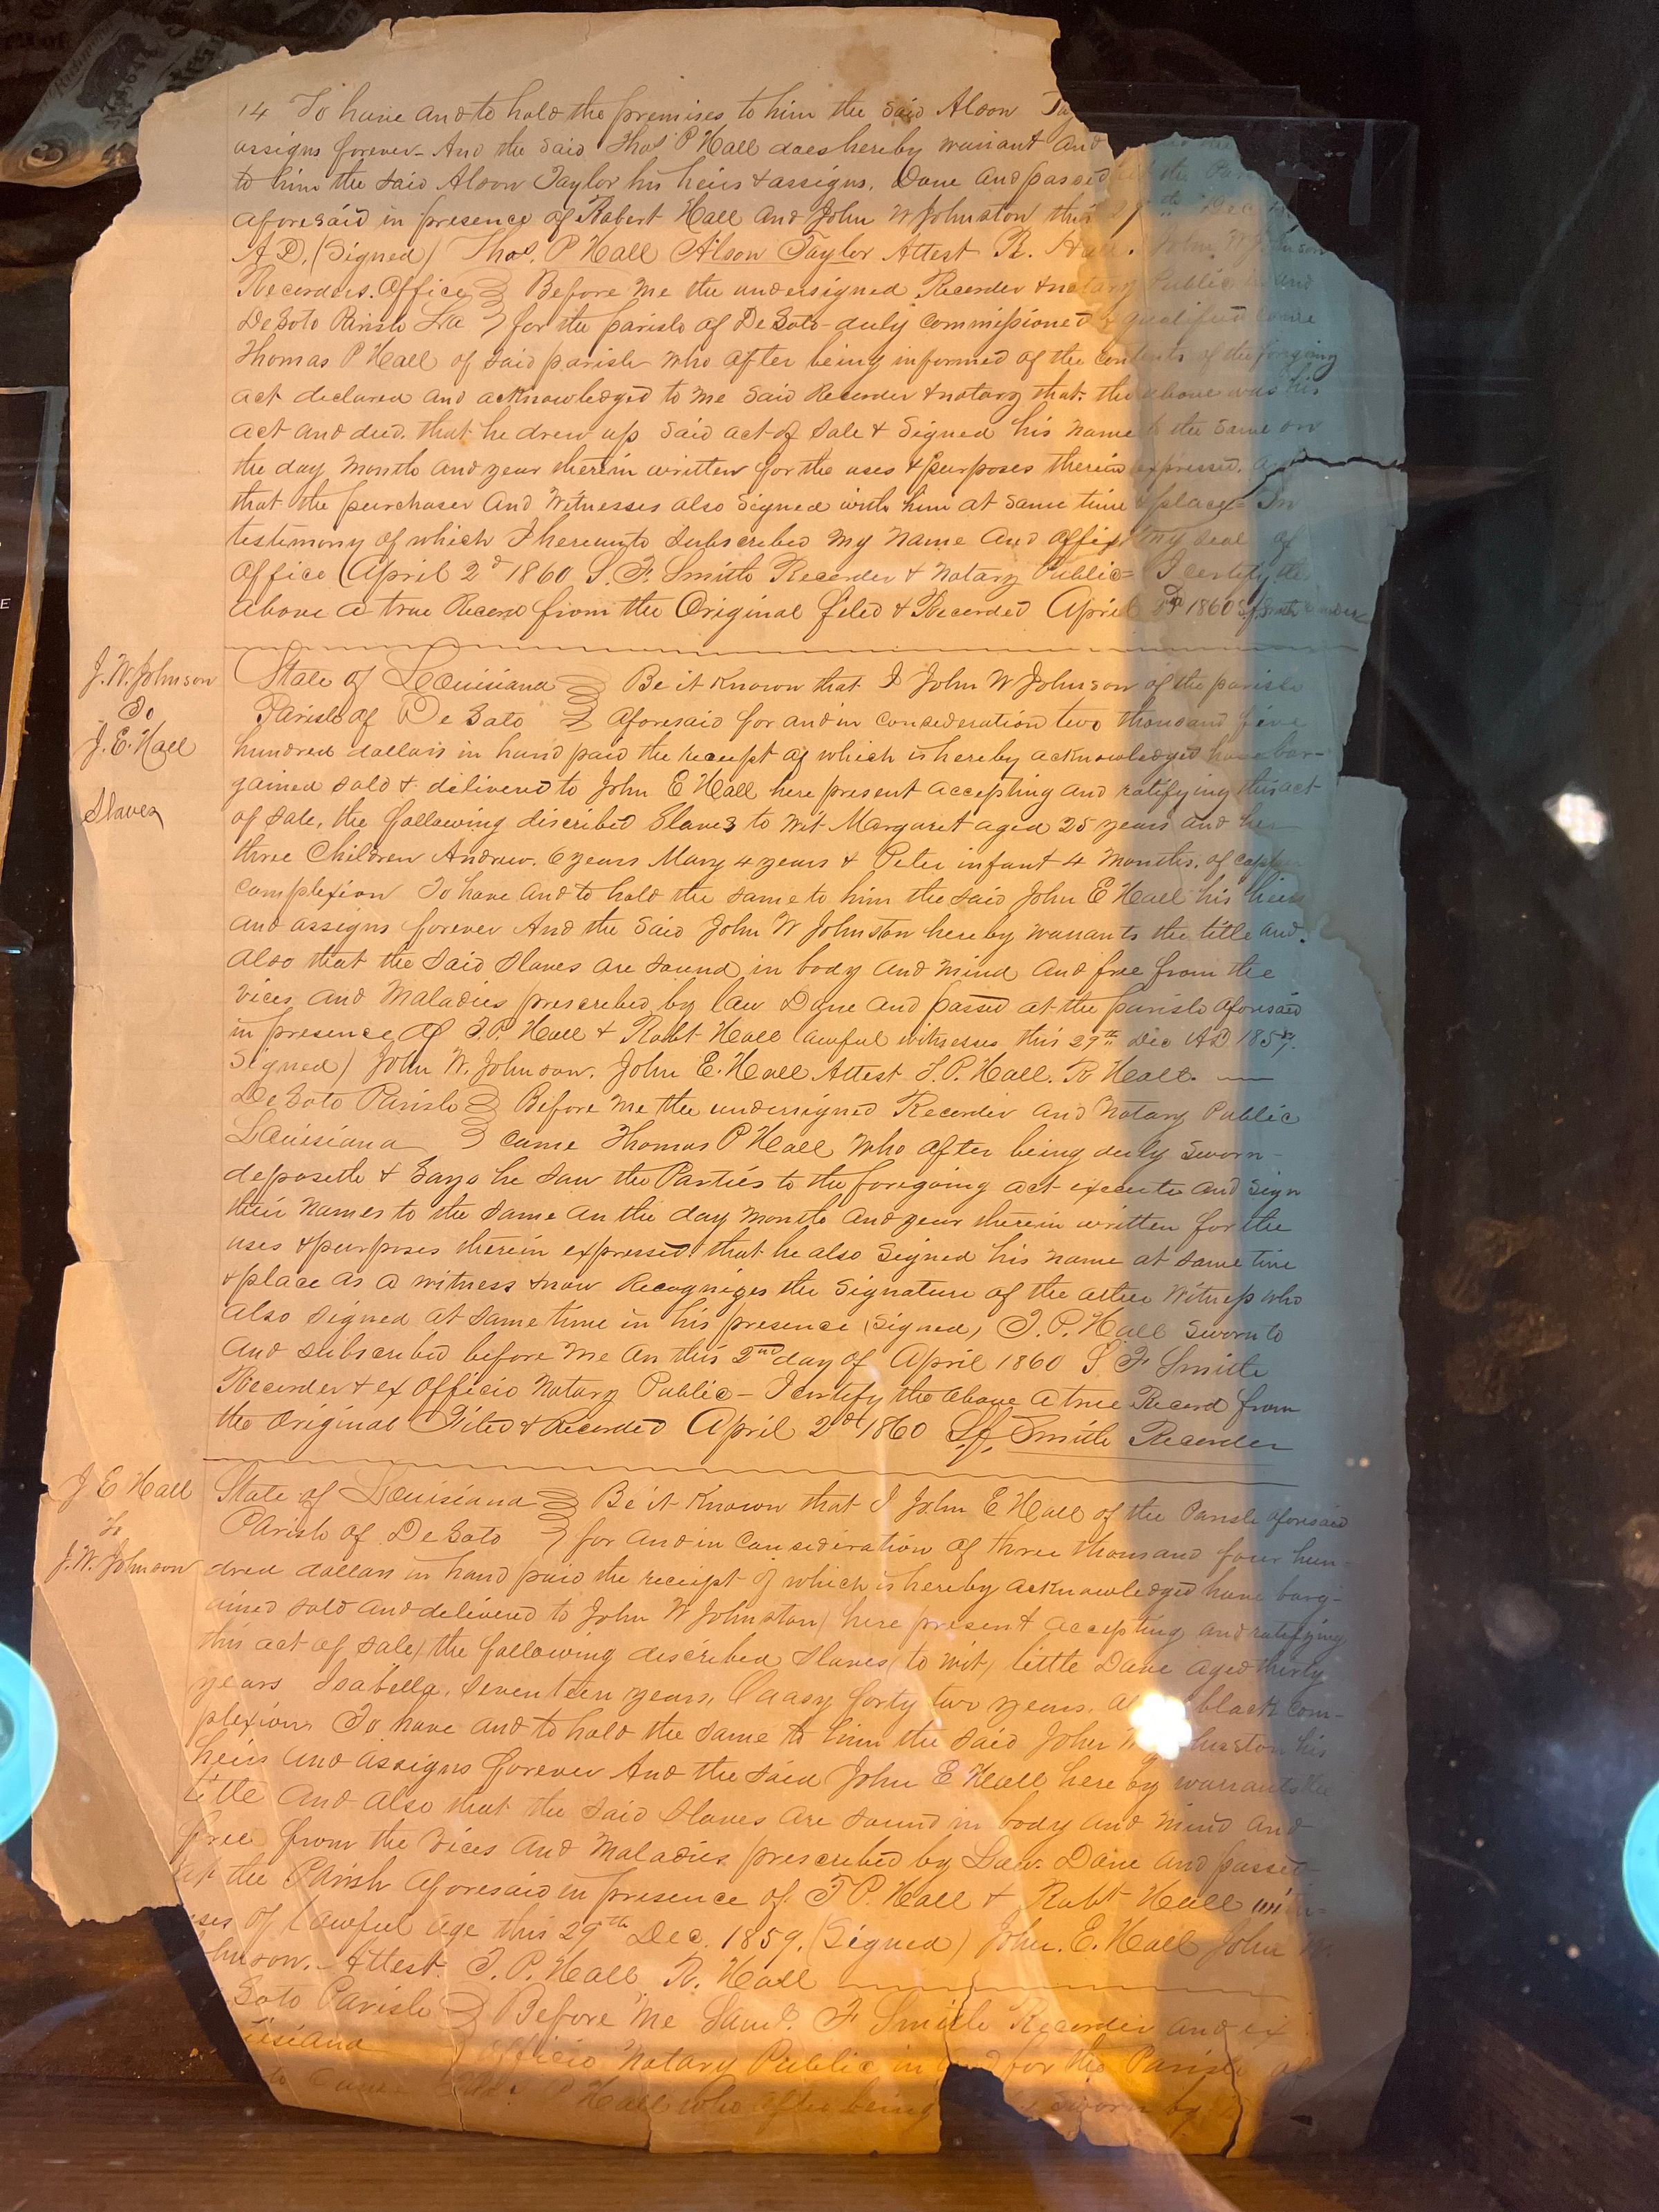 14 To have and to hold the premises to him the said Alson
assigns forever - And the said Thos P Hall does hereby warrant and
to him the said Alson Taylor his heirs & assigns. Done and passed the
aforesaid in presence of Robert Hall and John W Johnston this 29th Dec
A.D. (Signed) Thos. P Hall Alson Taylor Attest R. Hall. John W Johnson
Recorders Office Before me the undersigned Recorder & notary Public in and
De Soto Parish La for the parish of De Soto duly commissioned & qualified came
Thomas P Hall of said parish who after being informed of the contents of the foregoing
act declared and acknowledged to me said Recorder & notary that the above was his
act and deed. that he drew up said act of sale & signed his name to the same on
the day month and year therein written for the uses & purposes therein expressed.
that the purchaser and witnesses also signed with him at same time & place In
testimony of which I hereunto subscribed my name and affix my seal of
office (April 2d 1860 S. F. Smith Recorder & Notary Public = I certify the
above a true Record from the Original filed & Recorded April 2d 1860
J. W. Johnson
To
J. E. Hall
Slaves
State of Louisiana Be it Known that I John W Johnson of the parish
Parish of De Soto aforesaid for and in consideration two thousand five
hundred dollars in hand paid the receipt of which is hereby acknowledged have bar-
gained sold & delivered to John E Hall here present accepting and ratifying this act
of sale, the following discribed Slaves to wit Margaret aged 25 years and her
three Children Andrew. 6 years Mary 4 years & Peter infant 4 months. of
complexion To have and to hold the same to him the said John E Hall his heirs
and assigns forever And the said John W Johnston hereby warrants the title and.
also that the said slaves are sound in body and mind and free from the
vices and maladies prescribed by law Done and passed at the parish aforesaid
in presence of T. P. Hall & Robt Hall lawful witnesses this 29th Dec AD 1859.
Signed) John W. Johnson. John E. Hall Attest T. P. Hall. R Hall.
De Soto Parish Before me the undersigned Recorder and Notary Public
Louisiana came Thomas P Hall who after being duly sworn
deposeth & Says he saw the Parties to the foregoing act execute and sign
their names to the same on the day month and year therein written for the
uses & purposes therein expressed that he also signed his name at same time
& place as a witness & now Recognizes the signature of the other witness who
also signed at same time in his presence (Signed) T. P. Hall sworn to
and subscribed before me on this 2nd day of April 1860 S F Smith
Recorder & ex officio Notary Public - I certify the above a true Record from
the Original Filed & Recorded April 2d 1860 S. F. Smith Recorder
J E Hall
To
J. W. Johnson
State of Louisiana Be it Known that I John E Hall of the Parish aforesaid
Parish of De Soto for and in consideration of three thousand four hun-
dred dollars in hand paid the receipt of which is hereby acknowledged have barg-
ained sold and delivered to John W Johnston (here present accepting and ratifying
this act of sale) the following discribed slaves (to wit) little Dave aged thirty
years Isabella, seventeen years, forty two years, black com-
plexion To have and to hold the same to him the said John W Johnston his
heirs and assigns forever And the said John E Hall here by warrants the
title And also that the said slaves are sound in body and mind and
free from the vices and maladies prescribed by Law. Done and passed
at the Parish aforesaid in presence of T P. Hall & Robt Hall
of lawful age this 29th Dec. 1859. (Signed) John. E. Hall John W.
hnson. - Attest. T. P. Hall. R. Hall
Soto Parish Before me Saml. F Smith Recorder and ex
isiana officio Notary Public in and for the Parish of
to came P Hall who after being sworn by